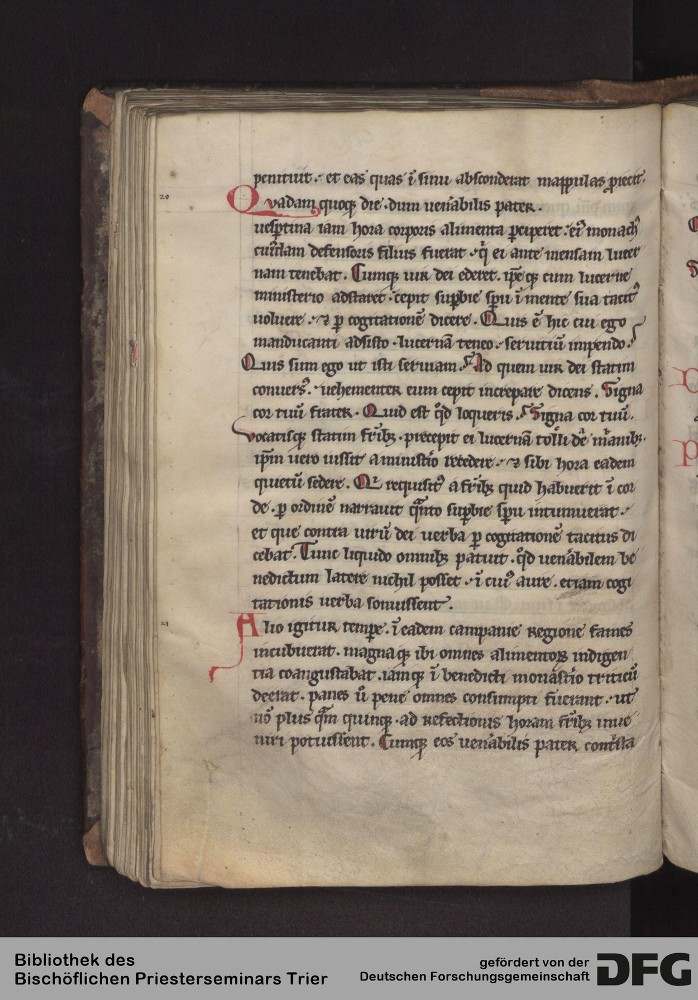 penituit. et eas quas ī sinu absconderat mappulas ꝓiecit.
20
Quadam quoqꝫ die. dum uen̄abilis pater.
uesꝑtina iam hora corporis alimenta ꝑciperet. eiꝰ monachꝰ
cuiꝰdam defensoris filius fuerat. qͥ ei ante mensam lucer
nam tenebat. Cumqꝫ uir dei ederet. ip̄e qꝫ cum lucerne
ministerio adstaret. cepit suꝑbie sp̄u ī mente sua tacitꝰ
uoluere. ⁊ ꝑ cogitationē dicere. Quis ē hic cui ego
manducanti adsisto. lucernā teneo. seruitiū impendo.
Quis sum ego ut isti seruiam. Ad quem uir dei statim
conuersꝰ. uehementer eum cepit increpare dicens. Signa
cor tuū frater. Quid est qͦd loqueris. Signa cor tuū.
Vocatisqꝫ statim fr̄ibꝫ. precepit ei lucernā tolli de manibꝫ.
ip̄m uero iussit a minist̄io recedere. ⁊ sibi hora eadem
quietū sedere. Qui requisitꝰ a fr̄ibꝫ quid habuerit ī cor
de. ꝑ ordinē narrauit qͣnto suꝑbie sp̄u intumuerat.
et que contra uirū dei uerba ꝑ cogitationē tacitus di
cebat. Tunc liquido omnibꝫ patuit. qͦd uen̄abilem be
nedictum latere nichil posset. ī cuiꝰ aure. etiam cogi
tationis uerba sonuissent.
21
Alio igitur tempe. ī eadem campanie regione fames
incubuerat. magnaqꝫ ibi omnes alimentoꝝ indigen
tia coangustabat. iamqꝫ ī benedicti monast̄io triticū
deerat. panes ū pene omnes consumpti fuerant. ut
nō plus qͣm quinqꝫ ad refectionis horam fr̄ibꝫ inue
niri potuissent. Cumqꝫ eos uen̄abilis pater cont̄sta
Bibliothek des
Bischöflichen Priesterseminars Trier
gefördert von der
Deutschen Forschungsgemeinschaft
DFG